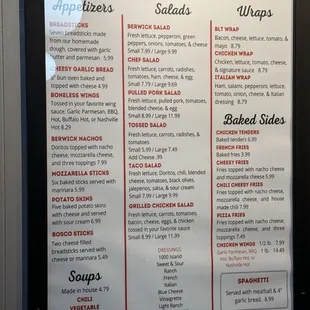 Appetizers
BREADSTICKS
Seven breadsticks made
from our homemade
dough, covered with garlic
butter and parmesan 5.99
CHEESY GARLIC BREAD
8" bun oven baked and
topped with cheese 4.99
BONELESS WINGS
Tossed in your favorite wing
sauce: Garlic Parmesan, BBQ,
Hot, Buffalo Hot, or Nashville
Hot 8.29
BERWICK NACHOS
Doritos topped with nacho
cheese, mozzarella cheese,
and three toppings 7.99
MOZZARELLA STICKS
Six baked sticks served with
marinara 5.99
POTATO SKINS
Five baked potato skins
with cheese and served
with sour cream 6.99
BOSCO STICKS
Two cheese filled
breadsticks served with
cheese or marinara 5.49
Soups
Made in house 4.79
CHILI
VEGETABLE
Salads
BERWICK SALAD
Fresh lettuce, pepperoni, green
peppers, onions, tomatoes, & cheese
Small 7.99 / Large 9.99
CHEF SALAD
Fresh lettuce, carrots, radishes,
tomatoes, ham, cheese, & egg
Small 7.79 / Large 9.69
PULLED PORK SALAD
Fresh lettuce, pulled pork, tomatoes,
blended cheese, & egg
Small 8.99 / Large 11.99
TOSSED SALAD
Fresh lettuce, carrots, radishes, &
tomatoes
Small 5.99 / Large 7.49
Add Cheese .99
TACO SALAD
Fresh lettuce, Doritos, chili, blended
cheese, tomatoes, black olives,
jalapenos, salsa, & sour cream
Small 7.99 / Large 9.99
GRILLED CHICKEN SALAD
Fresh lettuce, carrots, tomatoes,
bacon, cheese, eggs, & chicken
tossed in your favorite sauce
Small 8.99 / Large 11.99
DRESSINGS
1000 Island
Sweet & Sour
Ranch
French
Italian
Blue Cheese
Vinaigrette
Light Ranch
Wraps
BLT WRAP
Bacon, cheese, lettuce, tomato, &
mayo 8.79
CHICKEN WRAP
Chicken, lettuce, tomato, cheese,
& signature sauce 8.79
ITALIAN WRAP
Ham, salami, pepperoni, lettuce,
tomato, onion, cheese, & Italian
dressing 8.79
Baked Sides
CHICKEN TENDERS
Baked tenders 6.99
FRENCH FRIES
Baked fries 3.99
CHEESY FRIES
Fries topped with nacho
cheese 5.99
CHILI CHEESY FRIES
Fries topped with nacho
cheese, mozzarella cheese, and
house made chili 7.99
PIZZA FRIES
Fries topped with nacho cheese,
mozzarella cheese, and three
toppings 7.49
CHICKEN WINGS 1/2 lb. 7.99
Garlic Parmesan, BBQ, 1 lb. 14.49
Hot, Buffalo Hot, or
Nashville Hot
SPAGHETTI
Served with meatball & 4"
garlic bread. 8.99